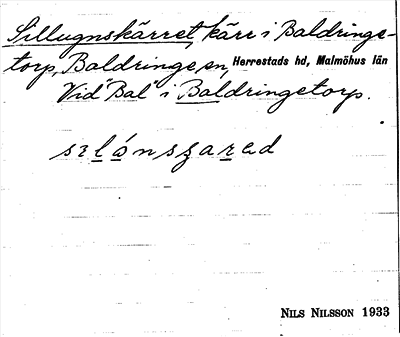 Sillugnskärret, kärr i Baldringe-
torp, Baldringe sn, Herrestads hd, Malmöhus län
Vid "Bal" i Baldringetorp.
NILS NILSSON 1933